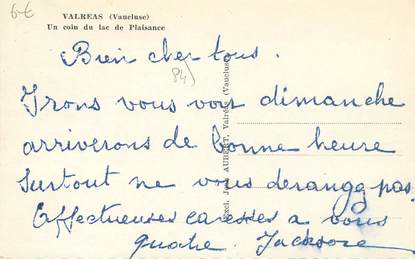 6€
VALREAS (Vaucluse)
Un coin du lac de Plaisance
Bien cher tous.
84)
Irons vous voir dimanche
arriverons de bonne heure
Surtout ne vous derangg pas
Affectueuses caresses a vous
quatre.
Excl. Jean AUBERT, Valréas (Vaucluse)